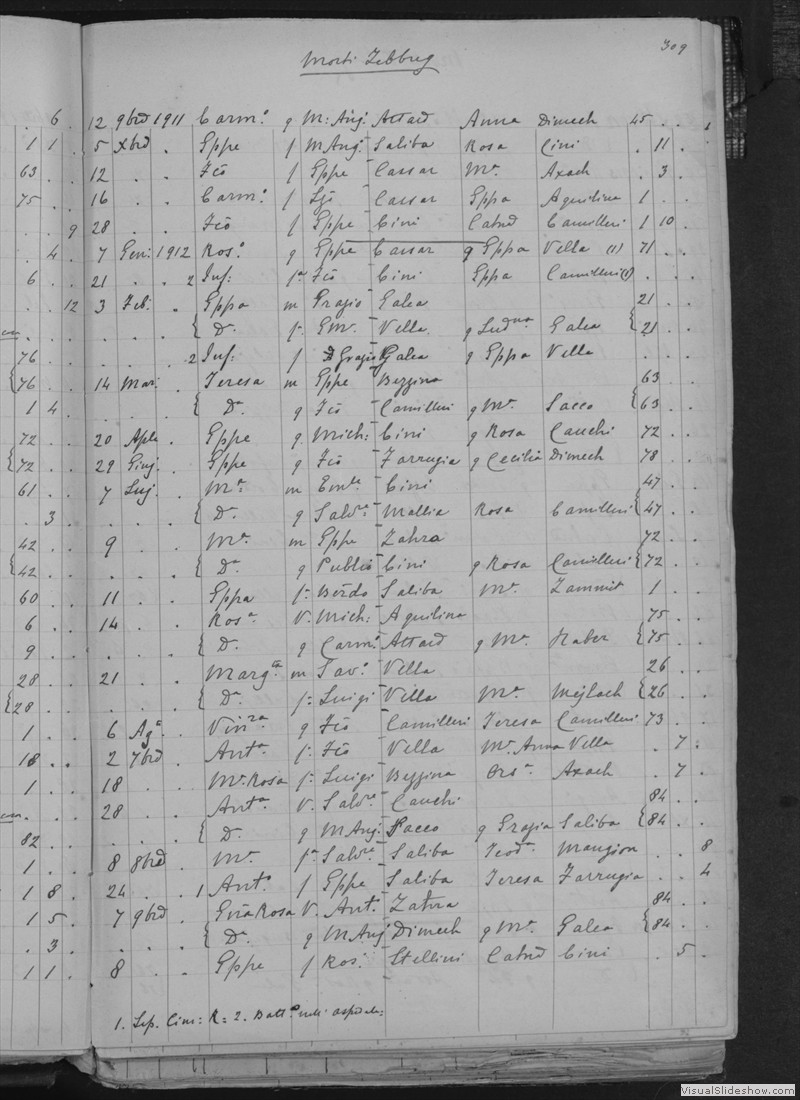 309
Morti Zebbug
6 . 12 9brē 1911 Carm.o q M: Ang: Attard Anna Dimech 45 . .
1 1 . 5 Xbrē . Gppe f M Ang: Saliba Rosa Cini . 11 .
63 . . 12 . . Fcō f Gppe Cassar Ma Axach . 3 .
75 . . 16 . . Carm.o f Caesar Gppa Aquilina 1 . .
. . 9 28 . . Fcō f Gppe Cini Catnā Camilleri 1 10 .
. 4 . 7 Gen: 1912 Ros.o q Gppe Caesar q Gppa Vella (1) 71 . .
6 . . 21 . . 2 Inf: Fcō Cini Gppa Camilleri (1) . . .
. . 12 3 Feb. . Gppa m Grazio Galea 21 . .
. . . . . . { Da f: Vella q Galea { 21 . .
76 . . . . . 2 Inf: f Grazio Galea q Gppa Vella . . .
{ 76 . . 14 Mar. . Teresa m Gppe Bezzina 63 . .
1 4 . . . . { Da q Fcō Camilleri q Ma Sacco { 63 . .
72 . . 20 Aple . Gppe q Mich: Cini q Rosa Cauchi 72 . .
{ 72 . . 29 Giug. . Gppe q Fcō Farrugia q Cecilia Dimech 78 . .
61 . . 7 Lug. . Ma m Cini 47 . .
. 3 . . . . { Da q Salvre Mallia Rosa Camilleri { 47 . .
42 . . 9 . . Ma m Gppe Zahra 72 . .
{ 42 . . . . . { Da q Publio Cini q Rosa Camilleri { 72 . .
60 . . 11 . . Gppa f: Saliba Ma Zammit 1 . .
6 . . 14 . . Rosa V. Mich: Aquilina 75 . .
9 . . . . . { Da q Carm.o Attard q Ma { 75 . .
28 . . 21 . . Marg.ta m Sav.o Vella 26 . .
{ 28 . . . . . { Da f: Luigi Vella Ma Mejlach { 26 . .
1 . . 6 Ag.o . q Fcō Camilleri Teresa Camilleri 73 . .
18 . . 2 7brē . Anta f: Fcō Vella Ma Anna Vella . 7 .
1 . . 18 . . Ma Rosa f: Luigi Bezzina Orsa Axach . 7 .
28 . . Anta V. Salvre Cauchi 84 . .
82 . . . . . { Da q M Ang: Sacco q Grazia Saliba { 84 . .
1 . . 8 8brē . Ma f: Salvre Saliba Teoda Mangion . . 8
1 8 . 24 . . 1 Ant.o f Gppe Saliba Teresa Farrugia . . 4
1 5 . 7 9brē . Rosa V. Ant.o Zahra 84 . .
. 3 . . . . { Da q M Ang: Dimech q Ma Galea { 84 . .
1 1 . 8 . . Gppe f Ros.o Stellini Catnā Cini . 5 .
1. Sep. Cim: R= 2. Batt.o
VisualSlideshow.com